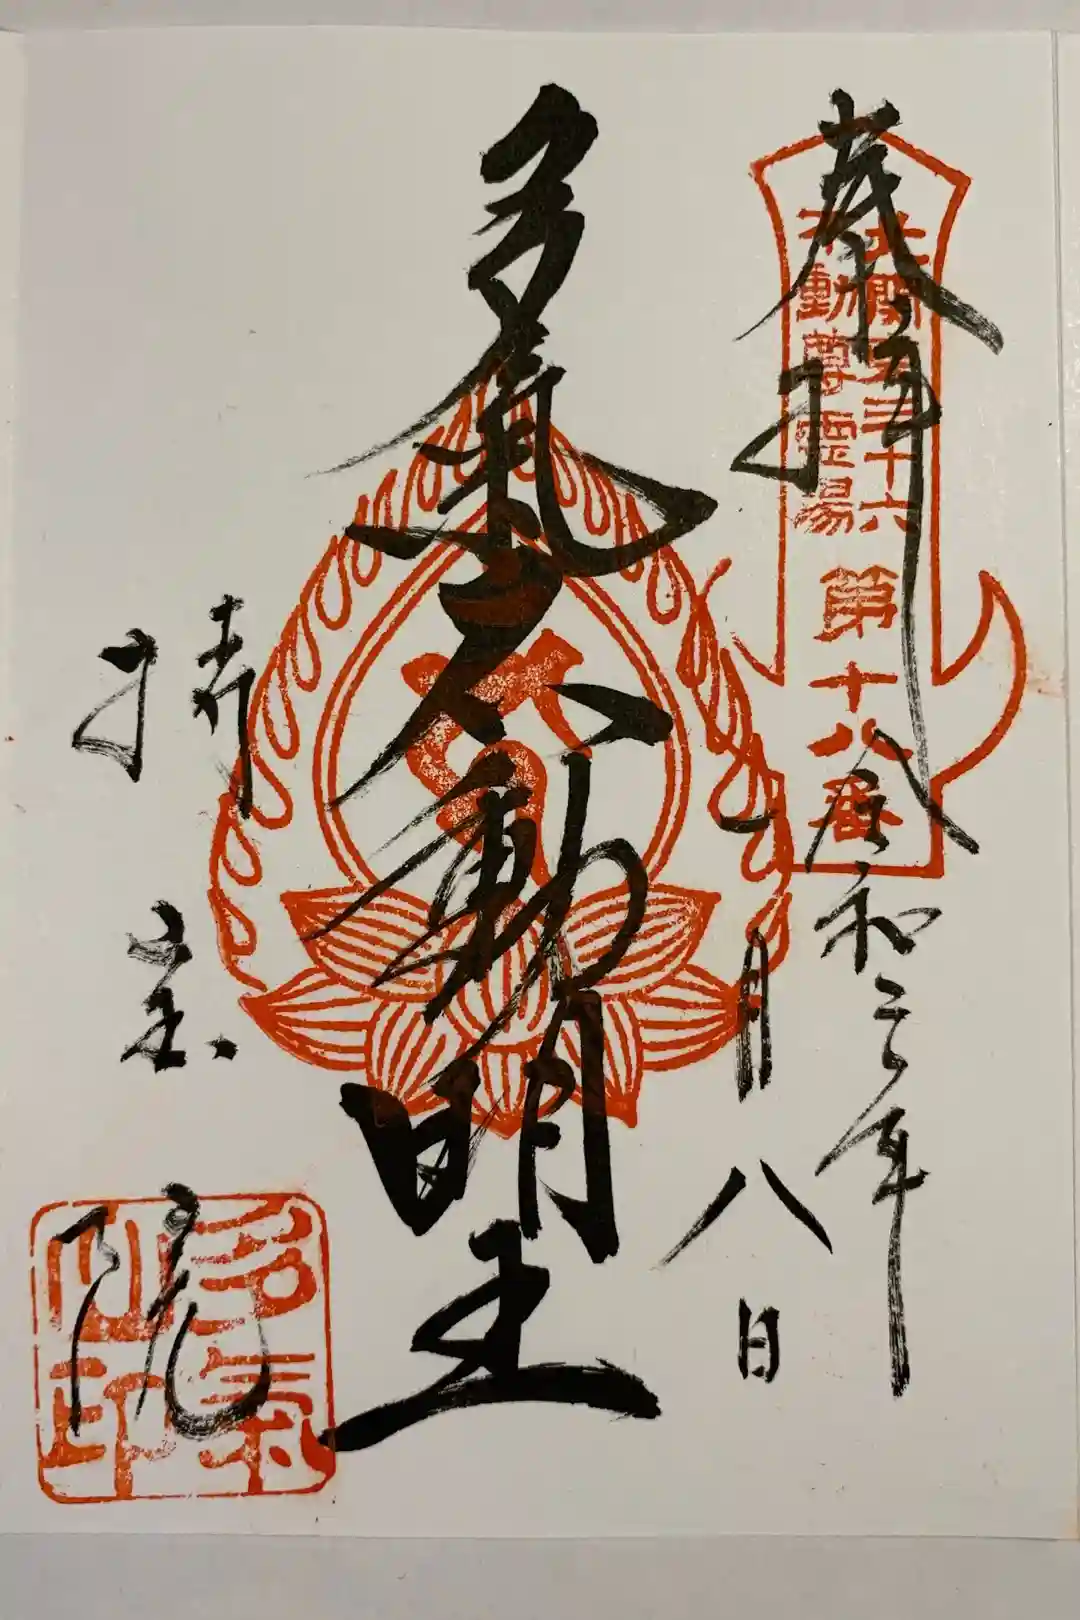 奉拝
北関東三十六
不動尊霊場
第十八番
令和三年
二月八日
多氣不動明王
持宝院
多氣
山印